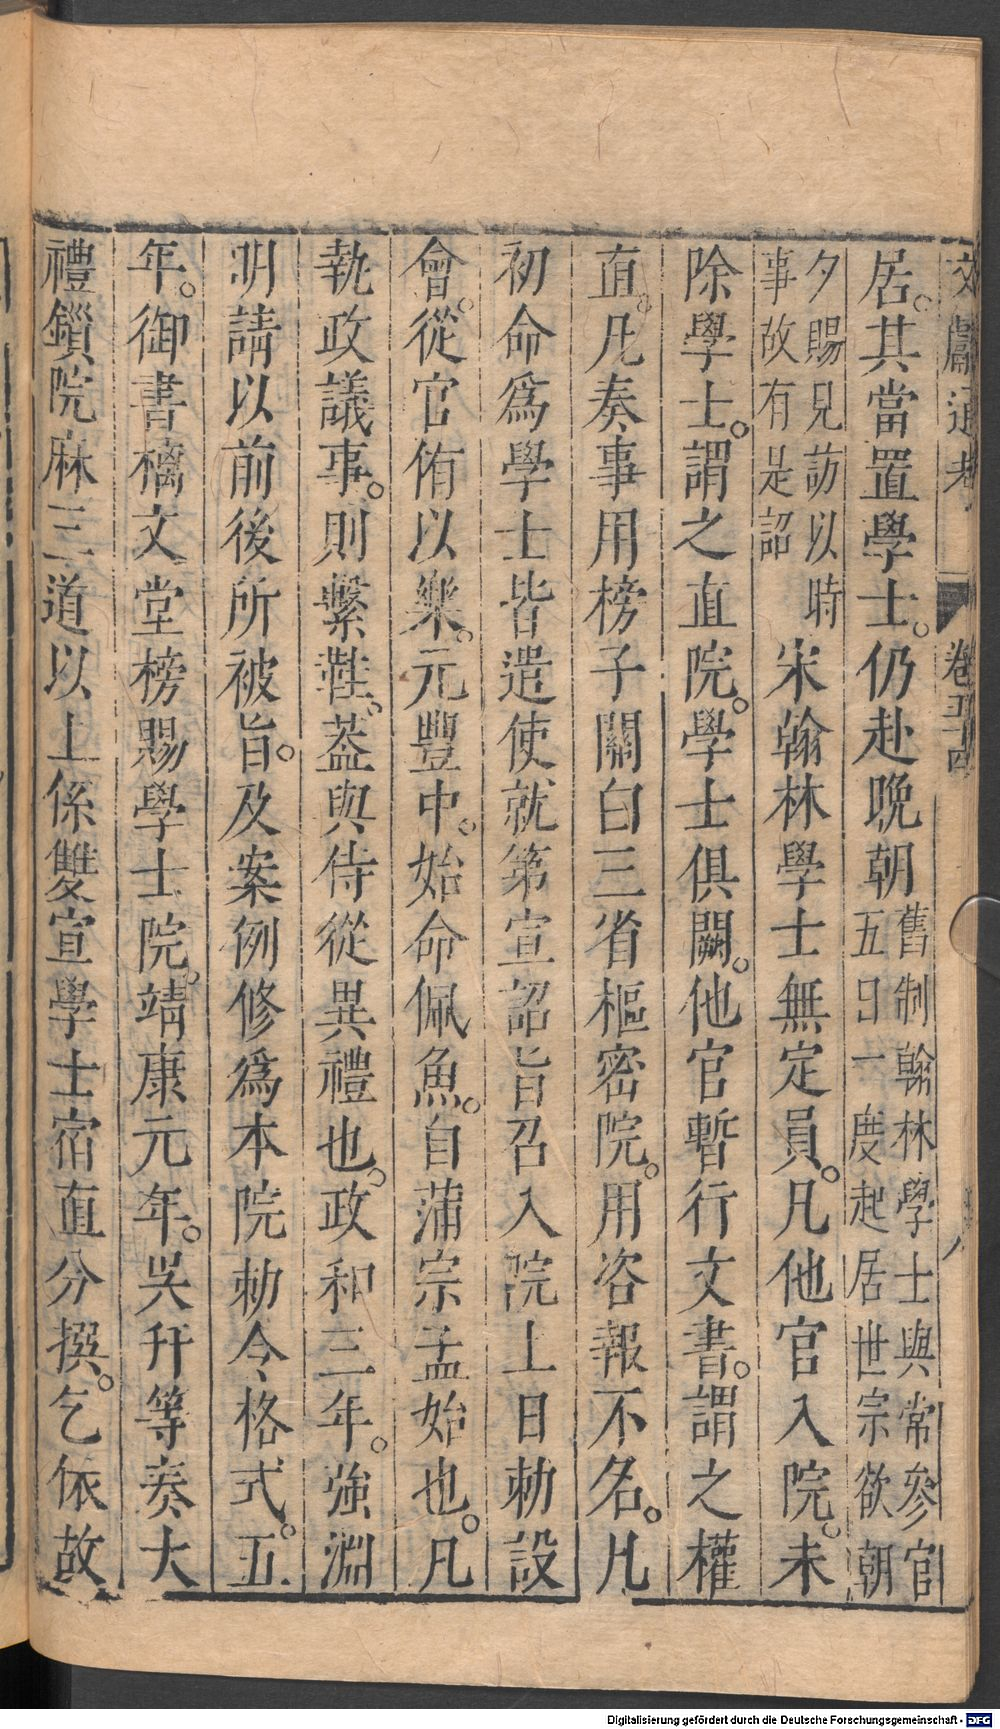 文獻通考 卷五十四 八
居。其當置學士。仍赴晚朝舊制翰林學士與常參官五日一度起居世宗欲朝
夕賜見訪以時事故有是詔 宋翰林學士無定員。凡他官入院。未
除學士。謂之直院。學士俱闕。他官暫行文書。謂之權
直。凡奏事用榜子關白三省樞密院。用咨報不名。凡
初命爲學士皆遣使就第宣詔旨召入院上日勅設
會。從官侑以樂。元豐中。始命佩魚。自蒲宗孟始也。凡
執政議事。則繫鞋。葢與侍從異禮也。政和三年。強淵
明請以前後所被旨。及案例修爲本院勅令格式。五
年。御書檇文堂榜賜學士院。靖康元年。吳幵等奏大
禮鎖院麻三道以上係雙宣學士宿直分撰。乞依故
Digitalisierung gefördert durch die Deutsche Forschungsgemeinschaft - DFG